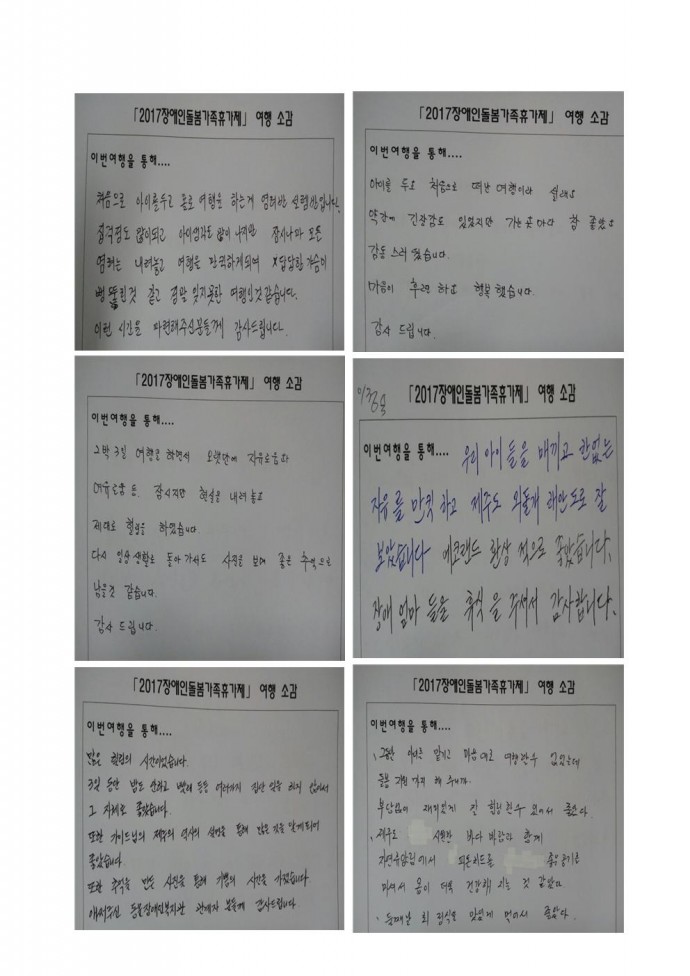 「2017장애인돌봄가족휴가제」 여행 소감
이번여행을 통해....
처음으로 아이를두고 홀로 여행을 하는게 염려반 설렘반입니다.
걱정도 많이되고 아이생각을 많이 나지만 잠시나마 모든
염려는 내려놓고 여행을 만끽하게되여 답답한 가슴이
뻥 뚫린것 같고 정말 잊지못할 여행인것같습니다.
이런 시간을 마련해주신분들께 감사드립니다.
「2017장애인돌봄가족휴가제」 여행 소감
이번여행을 통해....
아이를 두고 처음으로 떠난 여행이라 설레고
약간에 긴장감도 있었지만 가는곳마다 참 좋았고
감동스러웠습니다.
마음이 후련하고 행복했습니다.
감사 드립니다.
「2017장애인돌봄가족휴가제」 여행 소감
이번여행을 통해....
2박 3일 여행을 하면서 오랫만에 자유로움과
여유로움 등. 잠시지만 현실을 내려놓고
제대로 힐링을 하였습니다.
다시 일상생활로 돌아가서도 사진을 보며 좋은 추억으로
남을것 같습니다.
감사 드립니다.
「2017장애인돌봄가족휴가제」 여행 소감
이번여행을 통해.... 우리 아이들을 매끼고 한없는
자유를 만끽하고 제주도 외돌개 래안도로 잘
보았습니다 에코랜드 환상적으로 좋았습니다.
장애 엄마들을 휴식을 주셔서 감사합니다.
「2017장애인돌봄가족휴가제」 여행 소감
이번여행을 통해....
많은 힐링의 시간이었습니다.
3일 동안 밥도 안하고 빨래 등등 여러가지 집안일을 하지 않아서
그 자체로 좋았습니다.
또한 가이드님의 제주의 역사의 설명을 통해 많은 것을 알게되어
좋았습니다
또한 추억을 만든 사진을 통해 기쁨의 시간을 가졌습니다.
애써주신 동울장애인복지관 관계자 분들께 감사드립니다
「2017장애인돌봄가족휴가제」 여행 소감
이번여행을 통해....
그동안 아이를 맡기고 마음대로 여행할수 없었는데
돌봄 지원까지 해 주니까
부담없이 재미있게 잘 힐링할수 있어서 좋았다.
제주도 시원한 바다 바람과 함께
자연휴양림에서 피톤치드를 좋은공기를
마셔서 몸이 더욱 건강해 지는 것 같았다
둘째날 회정식을 맛있게 먹어서 좋았다.